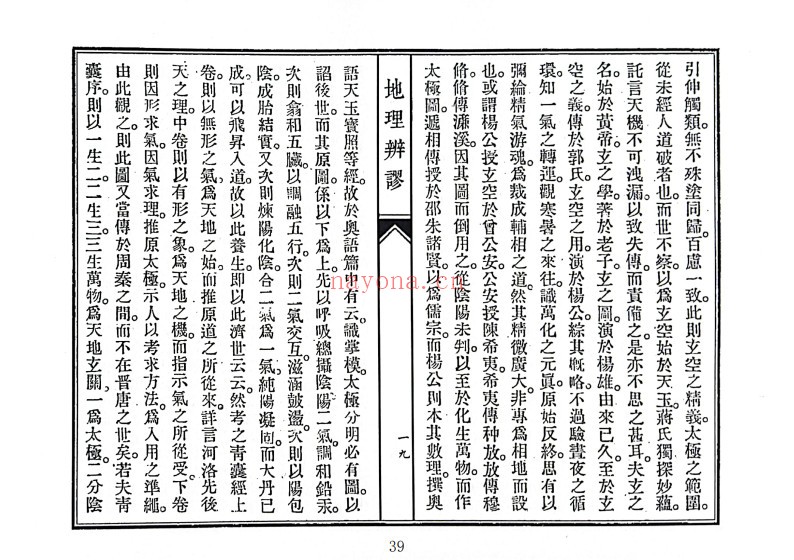 引伸觸類。無不殊塗同歸。百慮一致。此則玄空之精義。太極之範圍。
從未經人道破者也。而世不察。以爲玄空始於天玉。蔣氏獨探妙蘊。
託言天機不可洩漏。以致失傳而責備之。是亦不思之甚耳。夫玄之
名始於黃帝。玄之學著於老子。玄之圖演於楊雄。由來已久。至於玄
空之義傳於郭氏。玄空之用演於楊公。綜其槪略。不過驗晝夜之循
環。知一氣之轉運。觀寒暑之來往。識萬化之元眞。原始反終。思有以
彌綸精氣游魂。爲裁成輔相之道。然其精微廣大。非專爲相地而設
也。或謂楊公授玄空於曾公安。公安授陳希夷。希夷傳种放。放傳穆
脩。脩傳濂溪。因其圖而倒用之。從陰陽未判。以至於化生萬物。而作
太極圖。遞相傳授於邵朱諸賢。以爲儒宗。而楊公則本其數理。撰奥
地理辨謬
一九
語天玉寶照等經。故於奧語篇中有云。識掌模。太極分明必有圖。以
詔後世。而其原圖係以下爲上。先以呼吸總攝陰陽二氣。調和鉛汞。
次則翕和五臟。以調融五行。次則二氣交互。滋涵鼓盪。次則以陽包
陰。成胎結實。又次則煉陽化陰。合二氣爲一氣。純陽凝固。而大丹已
成。可以飛昇入道。故以此養生。即以此濟世云云。然考之靑囊經上
卷。則以無形之氣爲天地之始。而推原道之所從來。詳言河洛先後
天之理。中卷則以有形之象。爲天地之機。而指示氣之所從受。下卷
則因形求氣。因氣求理。推原太極。示人以考求方法。爲入用之準繩。
由此觀之。則此圖又當傳於周秦之間。而不在晉唐之世矣。若夫靑
囊序。則以一生二。二生三。三生萬物。爲天地玄關。一爲太極。二分陰
39
nayona.cn